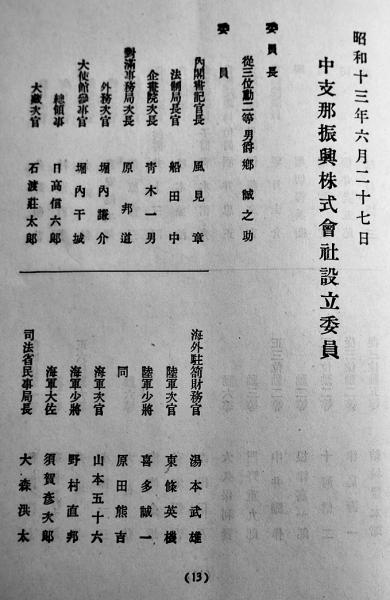 昭和十三年六月二十七日
中支那振興株式會社設立委員
委員長
從三位勳二等男爵 鄕誠之助
委員
內閣書記官長 風見章
法制局長官 船田中
企畫院次長 靑木一男
對滿事務局次長 原邦道
外務次官 堀內謙介
大使館參事官 堀內干城
總領事 日高信六郞
大藏次官 石渡莊太郞
海外駐箚財務官 湯本武雄
陸軍次官 東條英機
陸軍少將 喜多誠一
同 原田熊吉
海軍次官 山本五十六
海軍少將 野村直邦
海軍大佐 須賀彥次郞
司法省民事局長 大森洪太
(13)